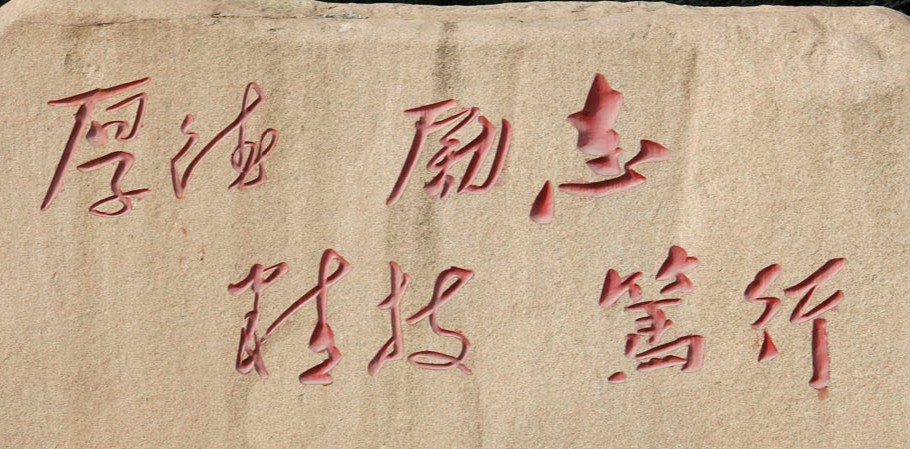 厚德 励志
精技 篤行